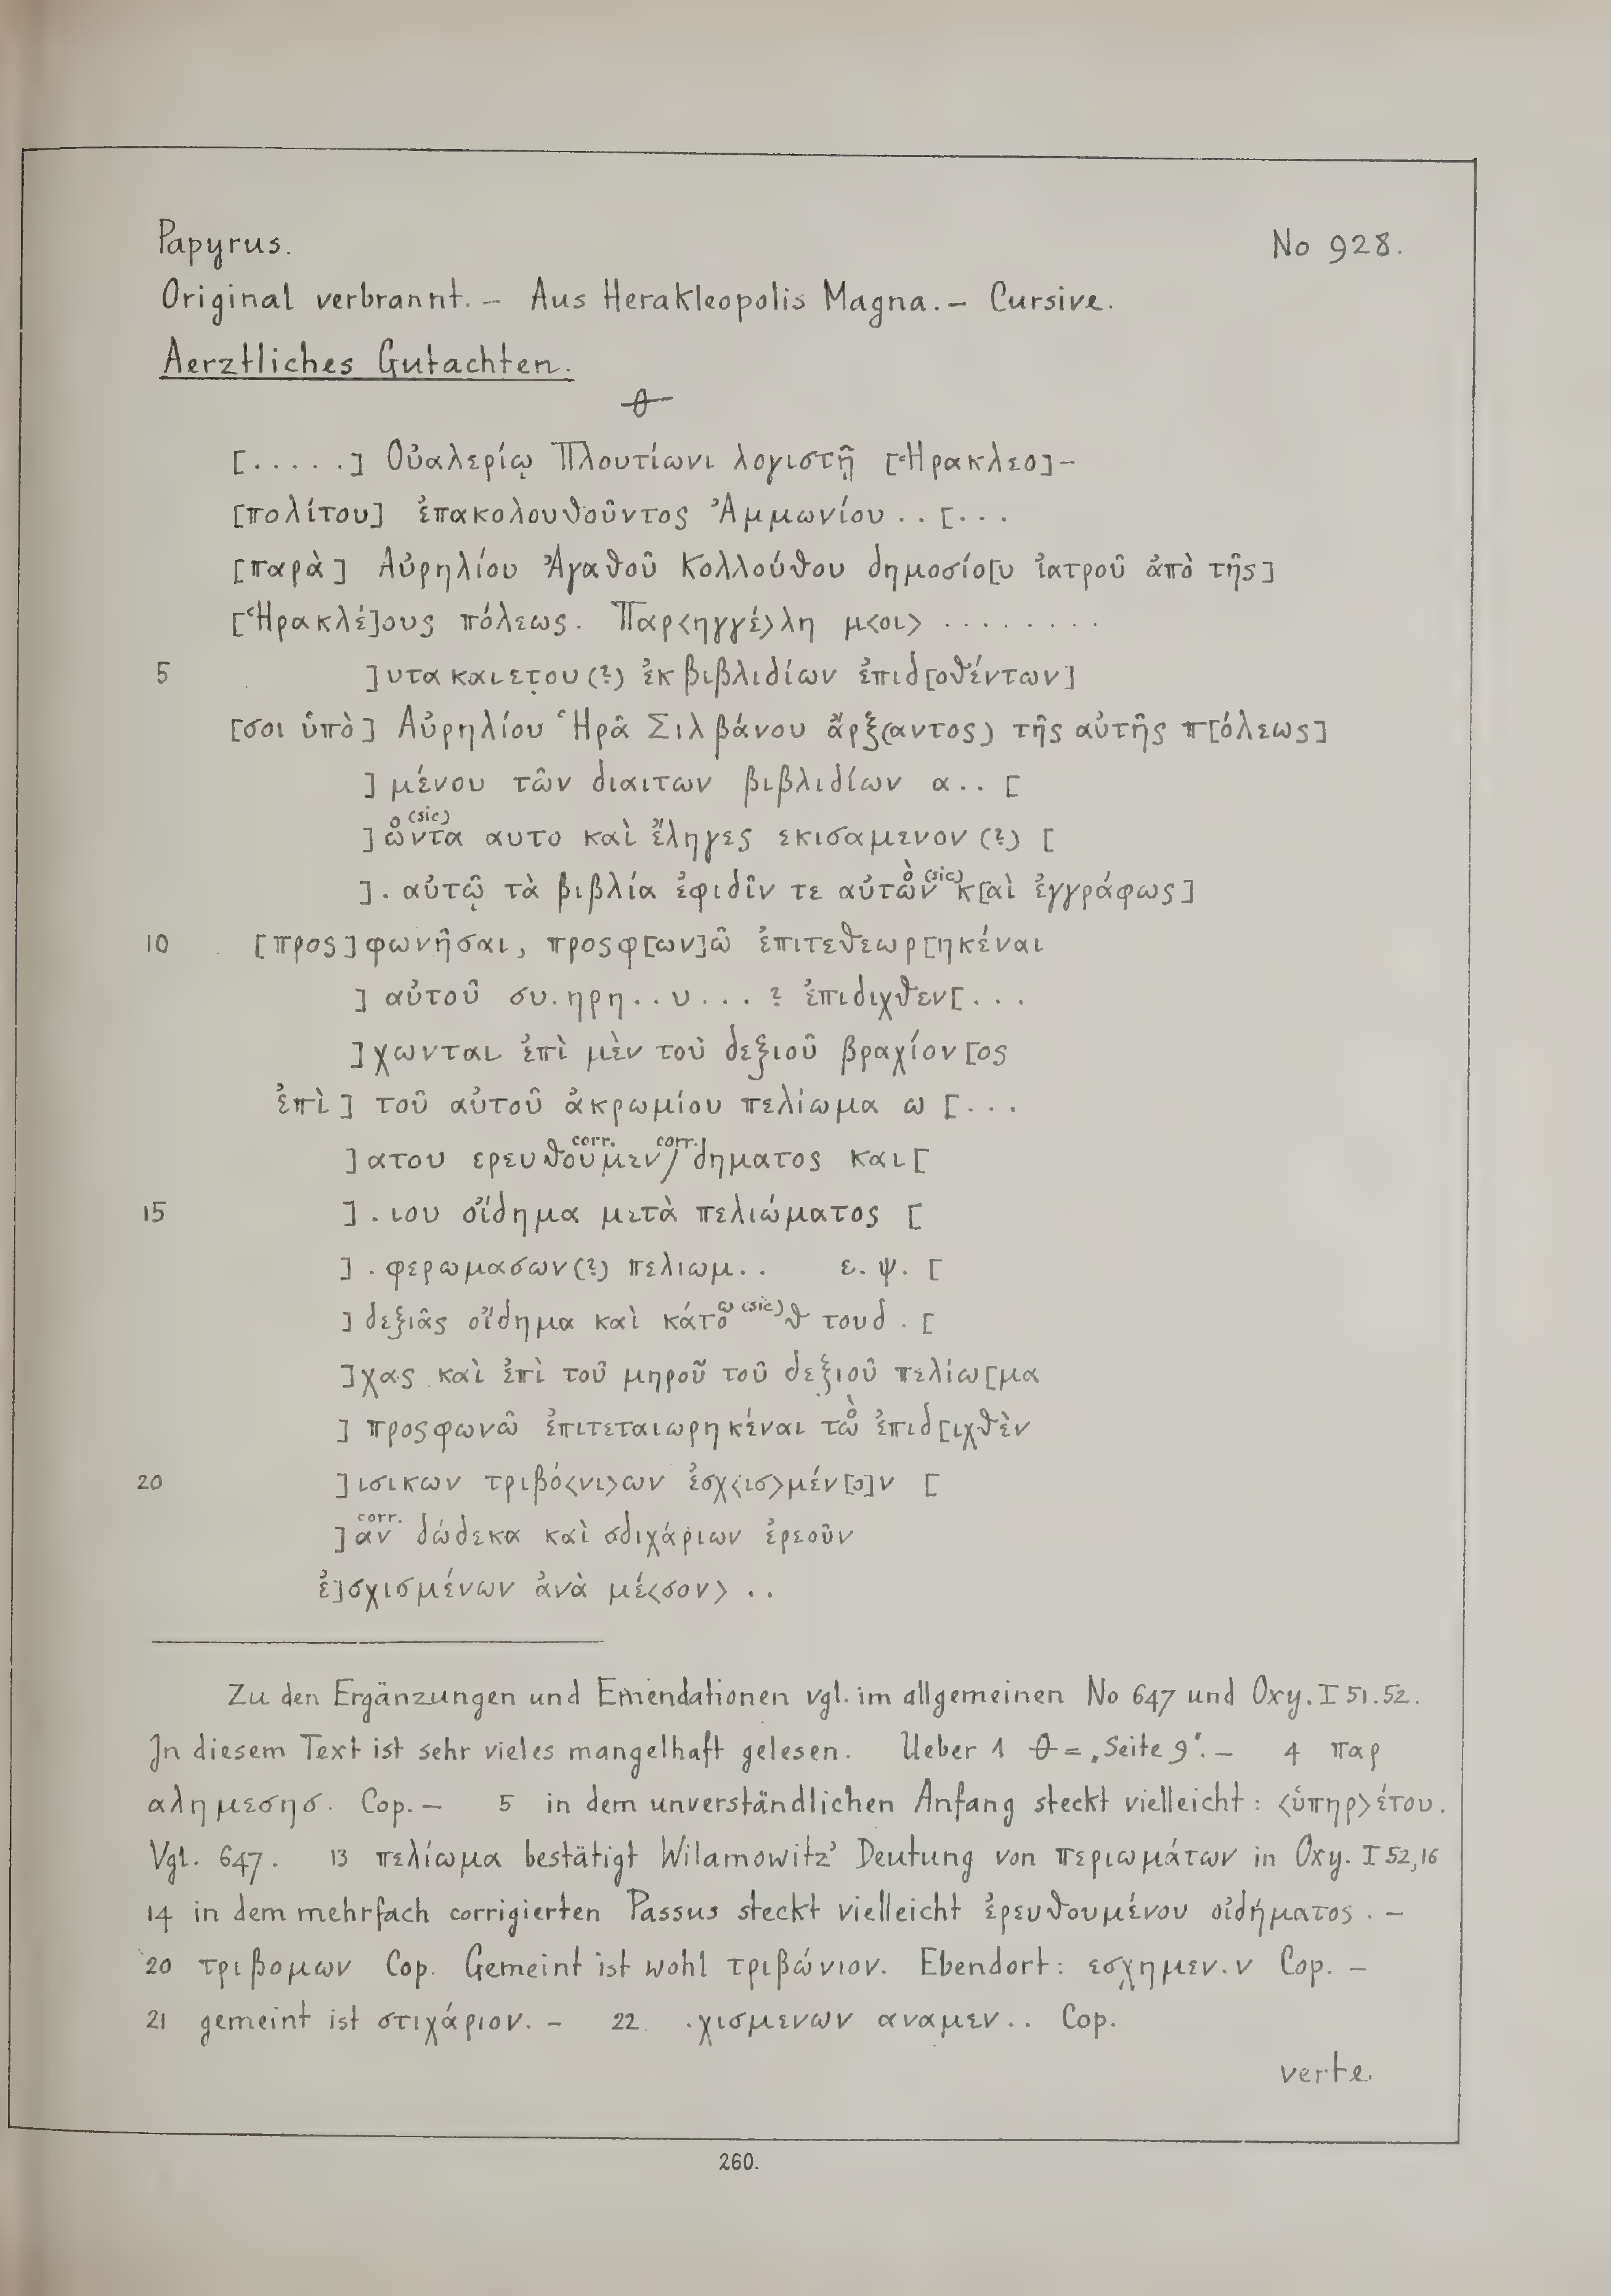 Papyrus. No 928.
Original verbrannt. – Aus Herakleopolis Magna. – Cursive.
Aerztliches Gutachten.
θ
[.....] Οὐαλερίῳ Πλουτίωνι λογιστῇ [Ἡρακλεο]-
[πολίτου] ἐπακολουθοῦντος Ἀμμωνίου .. [...
[παρὰ] Αὐρηλίου Ἀγαθοῦ Κολλούθου δημοσίο[υ ἰατροῦ ἀπὸ τῆς]
[Ἡρακλέ]ους πόλεως. Παρ<ηγγέ>λη μ<οι> ........
5 ]υτα καιετου(?) ἐκ βιβλιδίων ἐπιδ[οθέντων]
[σοι ὑπὸ] Αὐρηλίου Ἡρᾶ Σιλβάνου ἄρξ(αντος) τῆς αὐτῆς π[όλεως]
] μένου τῶν διαιτων βιβλιδίων α.. [
ο (sic)
] ὠντα αυτο καὶ ἔληγες εκισαμενον (?) [
]. αὐτῷ τὰ βιβλία ἐφιδῖν τε αὐτὼν ὸ (sic) κ[αὶ ἐγγράφως]
10 [προς]φωνῆσαι, προςφ[ων]ῶ ἐπιτεθεωρ[ηκέναι
] αὐτοῦ συ.ηρη..υ...? ἐπιδιχθεν[...
]χωνται ἐπὶ μὲν τοῦ δεξιοῦ βραχίον[ος
ἐπὶ] τοῦ αὐτοῦ ἀκρωμίου πελίωμα ω [...
corr. corr.
]ατου ερευθουμεν/δηματος και[
15 ]. ιου οἴδημα μετὰ πελιώματος [
]. φερωμασων(?) πελιωμ.. ε.ψ. [
] δεξιᾶς οἴδημα καὶ κάτο ω (sic) θ τουδ . [
]χας καὶ ἐπὶ τοῦ μηροῦ τοῦ δεξιοῦ πελίω[μα
] προςφωνῶ ἐπιτεταιωρηκέναι τὼ ὸ ἐπιδ[ιχθὲν
20 ]ισικων τριβό<νι>ων ἐσχ<ισ>μέν[ο]ν [
corr.
]αν δώδεκα καὶ σδιχάριων ἐρεοῦν
ἐ]σχισμένων ἀνὰ μέ<σον> ..
Zu den Ergänzungen und Emendationen vgl. im allgemeinen No 647 und Oxy. I 51. 52.
In diesem Text ist sehr vieles mangelhaft gelesen. Ueber 1 θ = „Seite 9". – 4 παρ
αλημεσησ. Cop. – 5 in dem unverständlichen Anfang steckt vielleicht: <ὑπηρ>έτου.
Vgl. 647. 13 πελίωμα bestätigt Wilamowitz' Deutung von περιωμάτων in Oxy. I 52,16
14 in dem mehrfach corrigierten Passus steckt vielleicht ἐρευθουμένου οἰδήματος. –
20 τριβομων Cop. Gemeint ist wohl τριβώνιον. Ebendort: εσχημεν.ν Cop. –
21 gemeint ist στιχάριον. – 22 .χισμενων αναμεν.. Cop.
verte.
260.